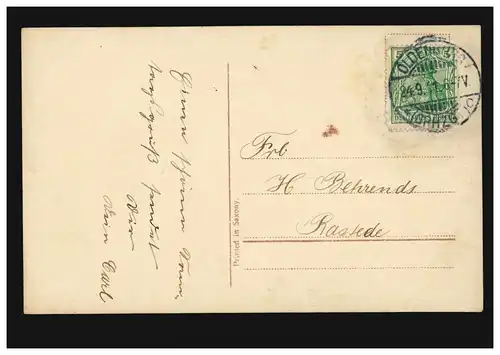 Einen schönen
gruß sendet
Dir
Dein Carl
Printed in Saxony.
5
OLDENBURG
Frl
H Behrends
Rastede